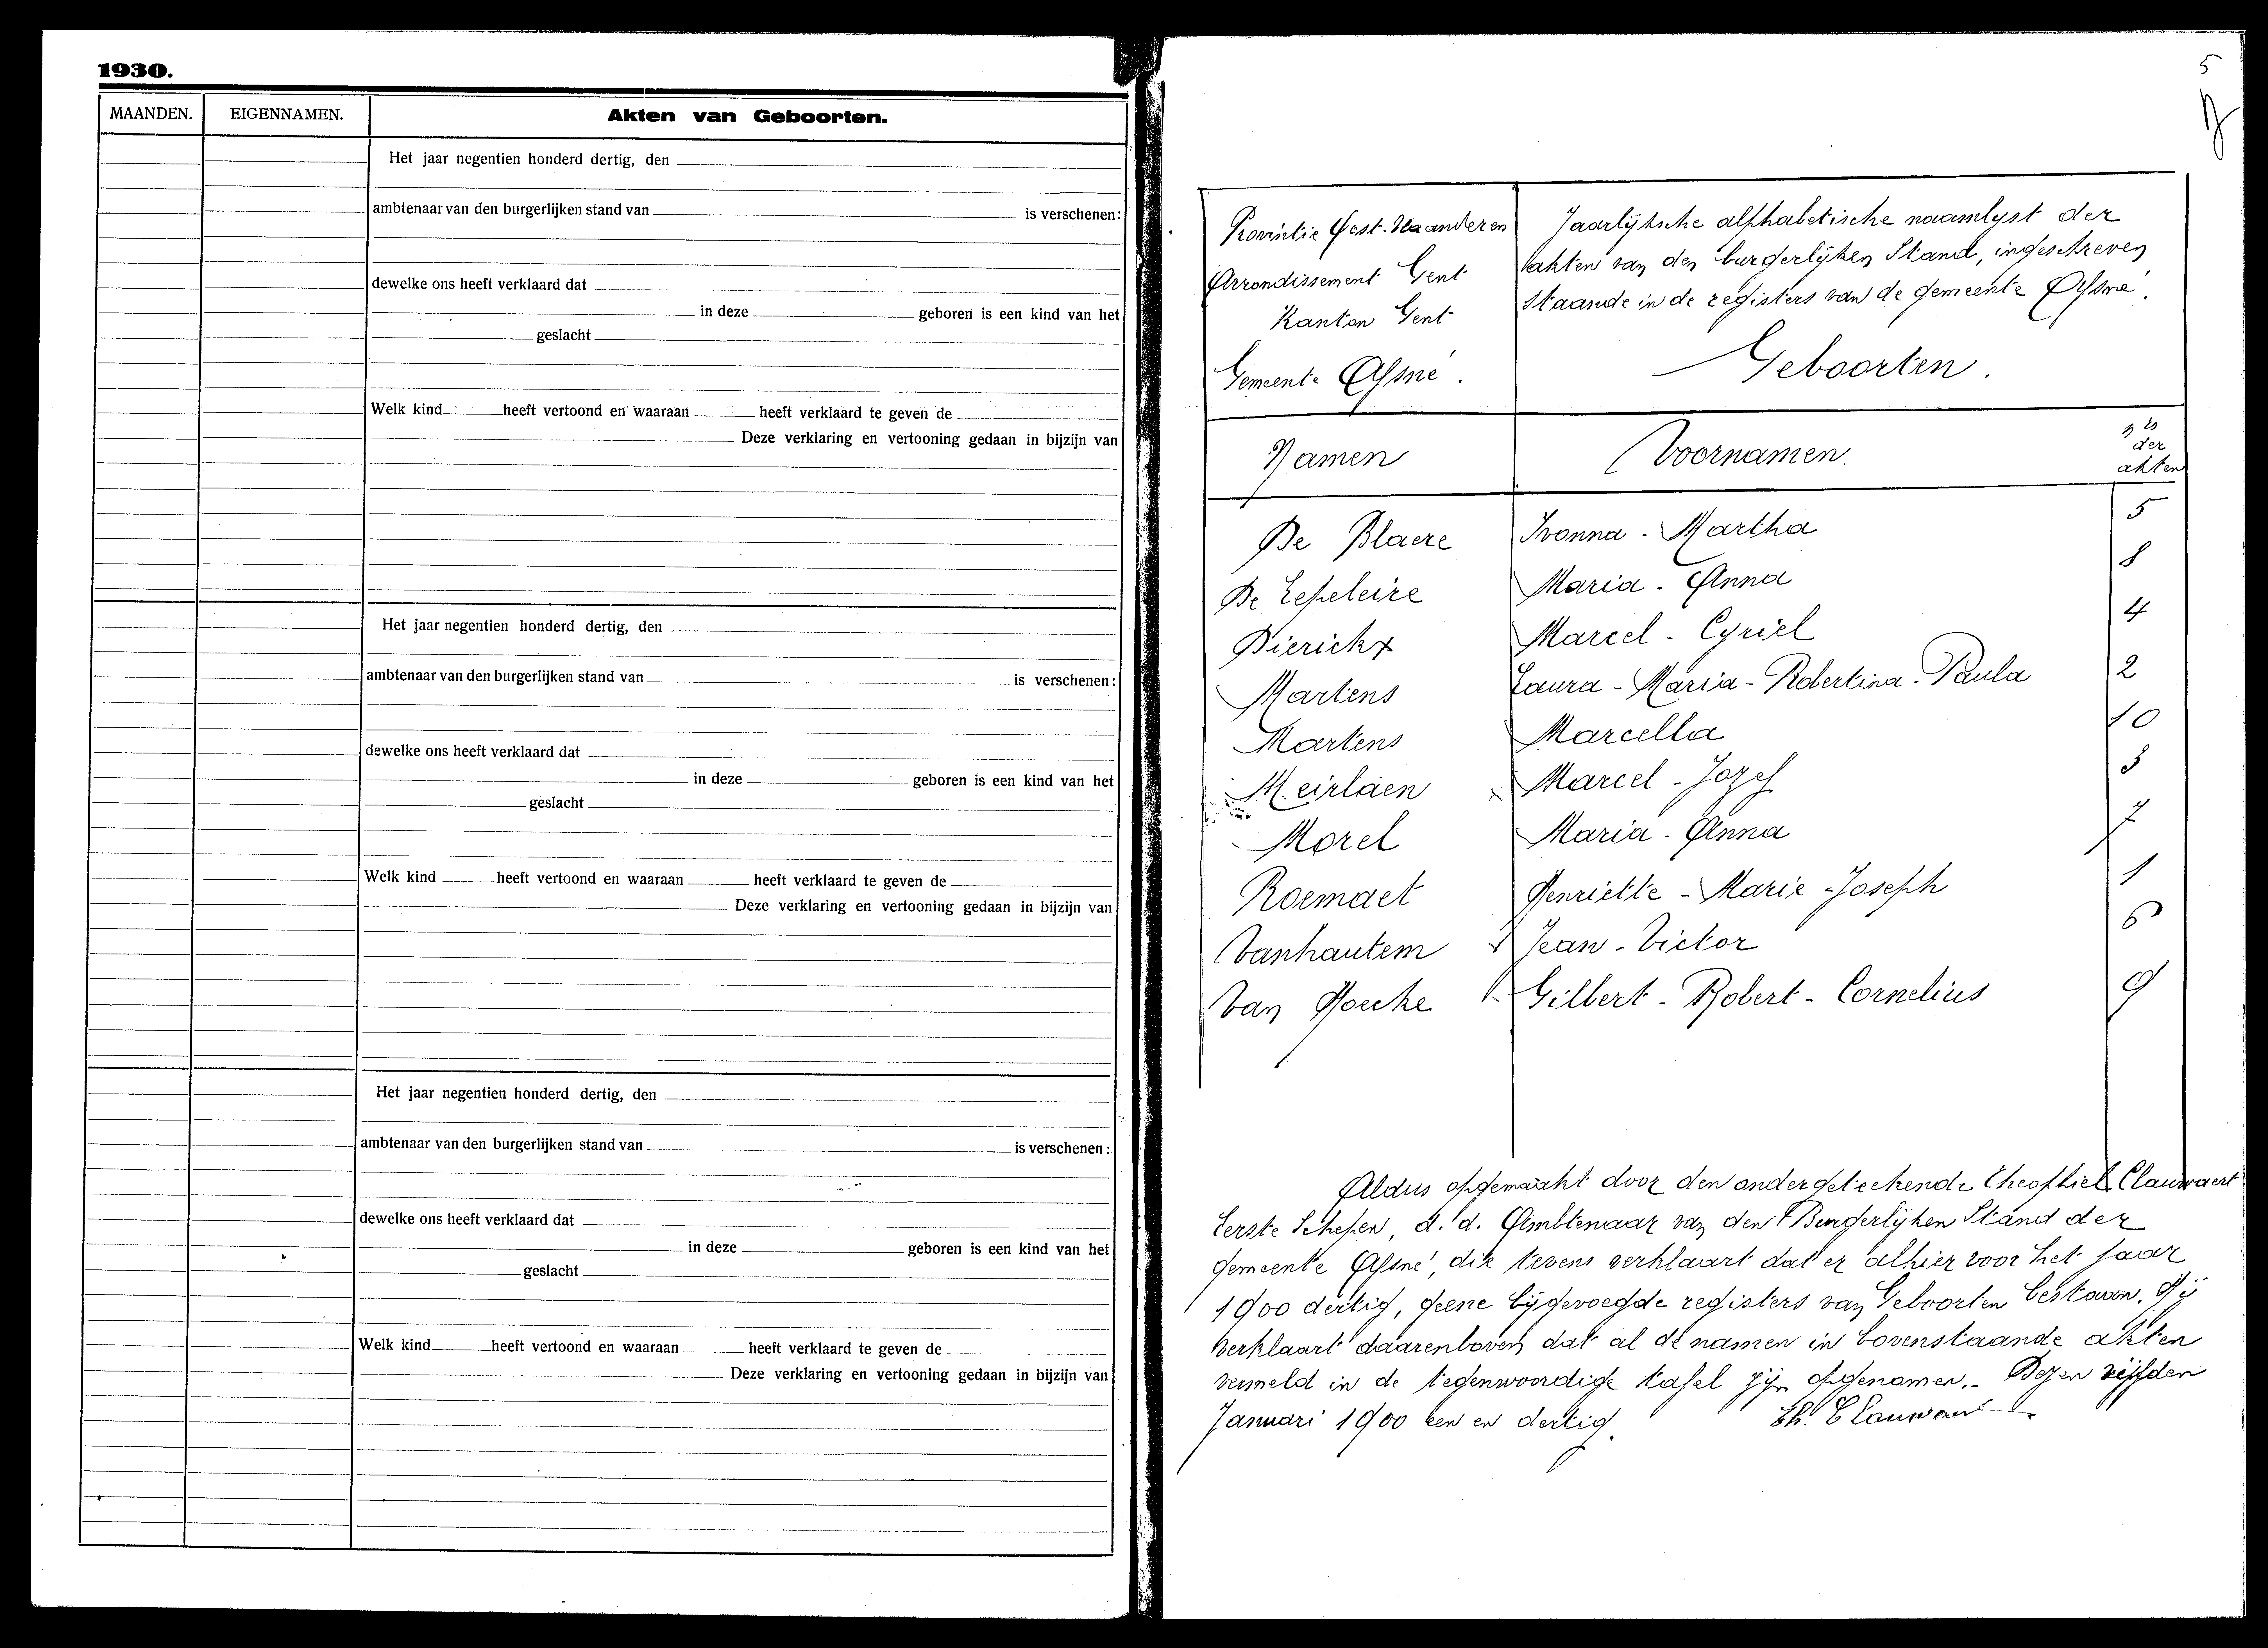 1930.
MAANDEN.
EIGENNAMEN.
Akten van Geboorten.
Het jaar negentien honderd dertig, den
ambtenaar van den burgerlijken stand van is verschenen:
dewelke ons heeft verklaard dat
in deze geboren is een kind van het
geslacht
Welk kind heeft vertoond en waaraan heeft verklaard te geven de
Deze verklaring en vertooning gedaan in bijzijn van
Het jaar negentien honderd dertig, den
ambtenaar van den burgerlijken stand van is verschenen:
dewelke ons heeft verklaard dat
in deze geboren is een kind van het
geslacht
Welk kind heeft vertoond en waaraan heeft verklaard te geven de
Deze verklaring en vertooning gedaan in bijzijn van
Het jaar negentien honderd dertig, den
ambtenaar van den burgerlijken stand van is verschenen:
dewelke ons heeft verklaard dat
in deze geboren is een kind van het
geslacht
Welk kind heeft vertoond en waaraan heeft verklaard te geven de
Deze verklaring en vertooning gedaan in bijzijn van
5
Provintie Oost-Vlaanderen
Arrondissement Gent
Kanton Gent
Gemeente Afsné.
Jaarlijksche alphabetische naamlyst der
akten van den burgerlijken Stand, ingeschreven
staande in de registers van de gemeente Afsné.
Geboorten.
Namen Voornamen nrs der akten
De Blaere Ivonna - Martha 5
De Lepeleire Maria - Anna 8
Dierickx Marcel - Cyriel 4
Martens Laura - Maria - Robertina - Paula 2
Martens Marcella 10
Meirlaen Marcel - Jozef 3
Morel Maria - Anna 7
Roemaet Henriette - Marie - Joseph 1
Vanhautem Jean - Victor 6
Van Hoecke Gilbert - Robert - Cornelius 9
Aldus opgemaakt door den ondergeteekende Theophiel Clauwaert
Eerste Schepen, d.d. Ambtenaar van den Burgerlijken Stand der
gemeente Afsné, die tevens verklaart dat er alhier voor het jaar
1900 dertig, geene bijgevoegde registers van Geboorten bestaan. Hij
verklaart daarenboven dat al de namen in bovenstaande akten
vermeld in de tegenwoordige tafel zijn opgenomen. Dezen vijfden
Januari 1900 een en dertig.
Th. Clauwaert